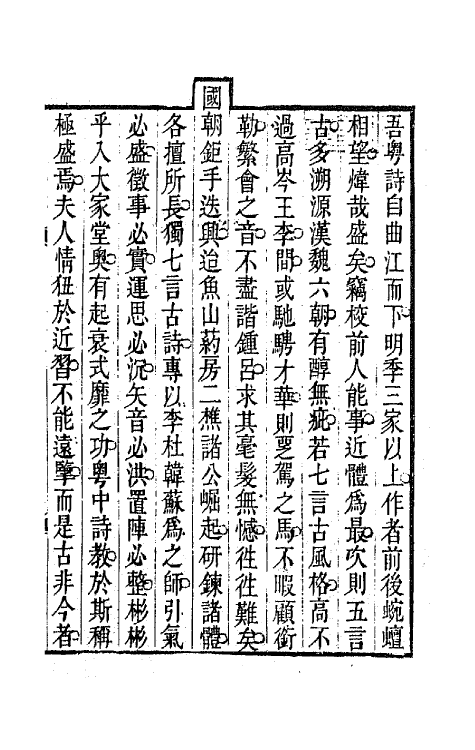 吾粵詩自曲江而下明季三家以上作者前後蜿蟺
相望煒哉盛矣竊校前人能事近體爲最次則五言
古多溯源漢魏六朝有醇無疵若七言古風格高不
過高岑王李間或馳騁才華則覂駕之馬不暇顧銜
勒繁會之音不盡諧鍾呂求其毫髮無憾徃徃難矣
國朝鉅手迭興迨魚山葯房二樵諸公崛起研鍊諸體
各擅所長獨七言古詩專以李杜韓蘇爲之師引氣
必盛徵事必實運思必沉矢音必洪置陣必整彬彬
乎入大家堂奧有起衰式靡之功粵中詩教於斯稱
極盛焉夫人情狃於近習不能遠擥而是古非今者